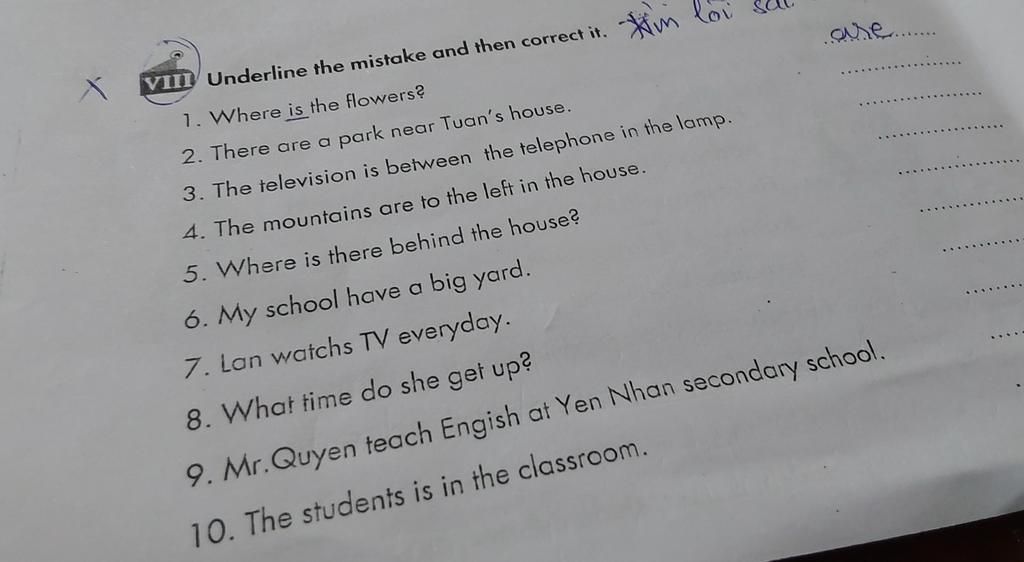 VIII Underline the mistake and then correct it. Tìm lỗi sai
1. Where is the flowers? ........are........
2. There are a park near Tuan's house. ....................
3. The television is between the telephone in the lamp. ....................
4. The mountains are to the left in the house. ....................
5. Where is there behind the house? ....................
6. My school have a big yard. ....................
7. Lan watchs TV everyday. ....................
8. What time do she get up? ....................
9. Mr.Quyen teach Engish at Yen Nhan secondary school. ....................
10. The students is in the classroom.